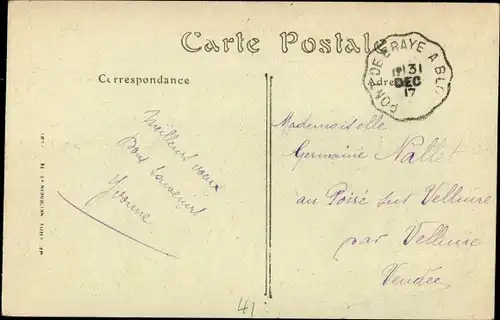 Carte Postale
Correspondance
Adresse
PONT-DE-BRAYE A BLO
31
DEC
17
Meilleurs vœux
Yvonne
Mademoiselle
Germaine Nallet
au Poiré sur Velluire
par Velluire
Vendée
41